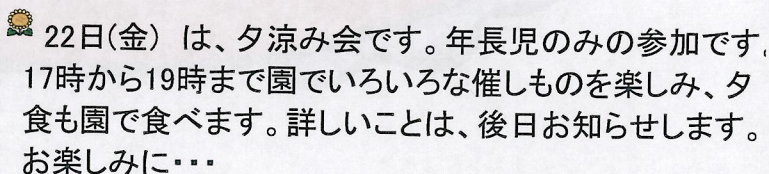 22日(金) は、夕涼み会です。年長児のみの参加です。
17時から19時まで園でいろいろな催しものを楽しみ、夕
食も園で食べます。詳しいことは、後日お知らせします。
お楽しみに・・・